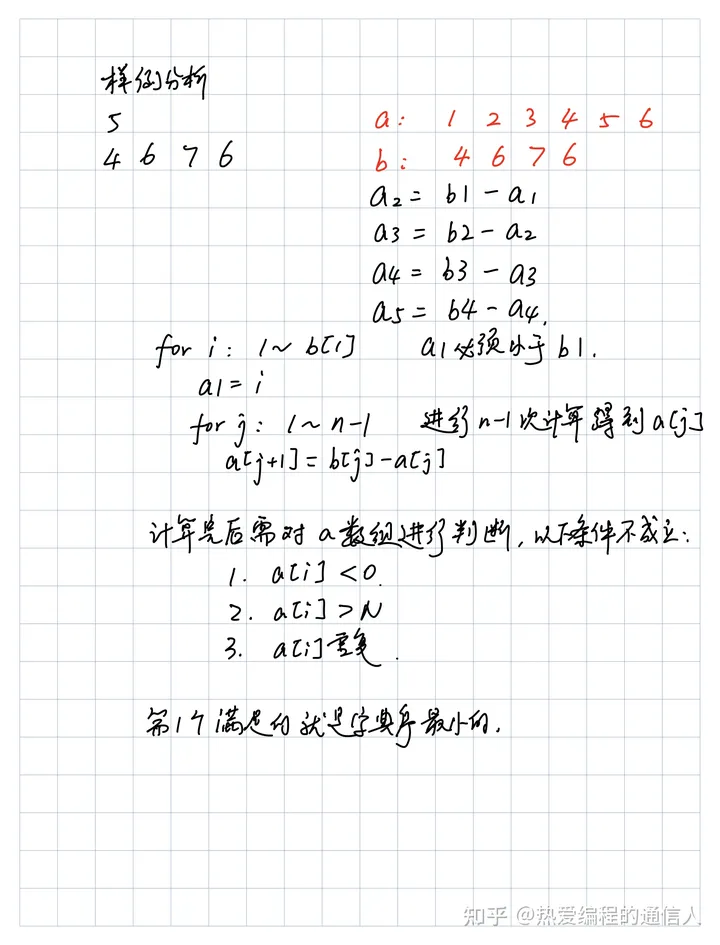 样例分析
5
4 6 7 6
a: 1 2 3 4 5 6
b: 4 6 7 6
a2 = b1 - a1
a3 = b2 - a2
a4 = b3 - a3
a5 = b4 - a4.
for i: 1~b[1] a1必须小于b1.
a1 = i
for j: 1~n-1 进行n-1次计算得到a[j]
a[j+1] = b[j] - a[j]
计算完后需对a数组进行判断,以下条件不成立:
1. a[i] < 0.
2. a[i] > N
3. a[i]重复.
第1个满足的就是字典序最小的.
知乎 @热爱编程的通信人